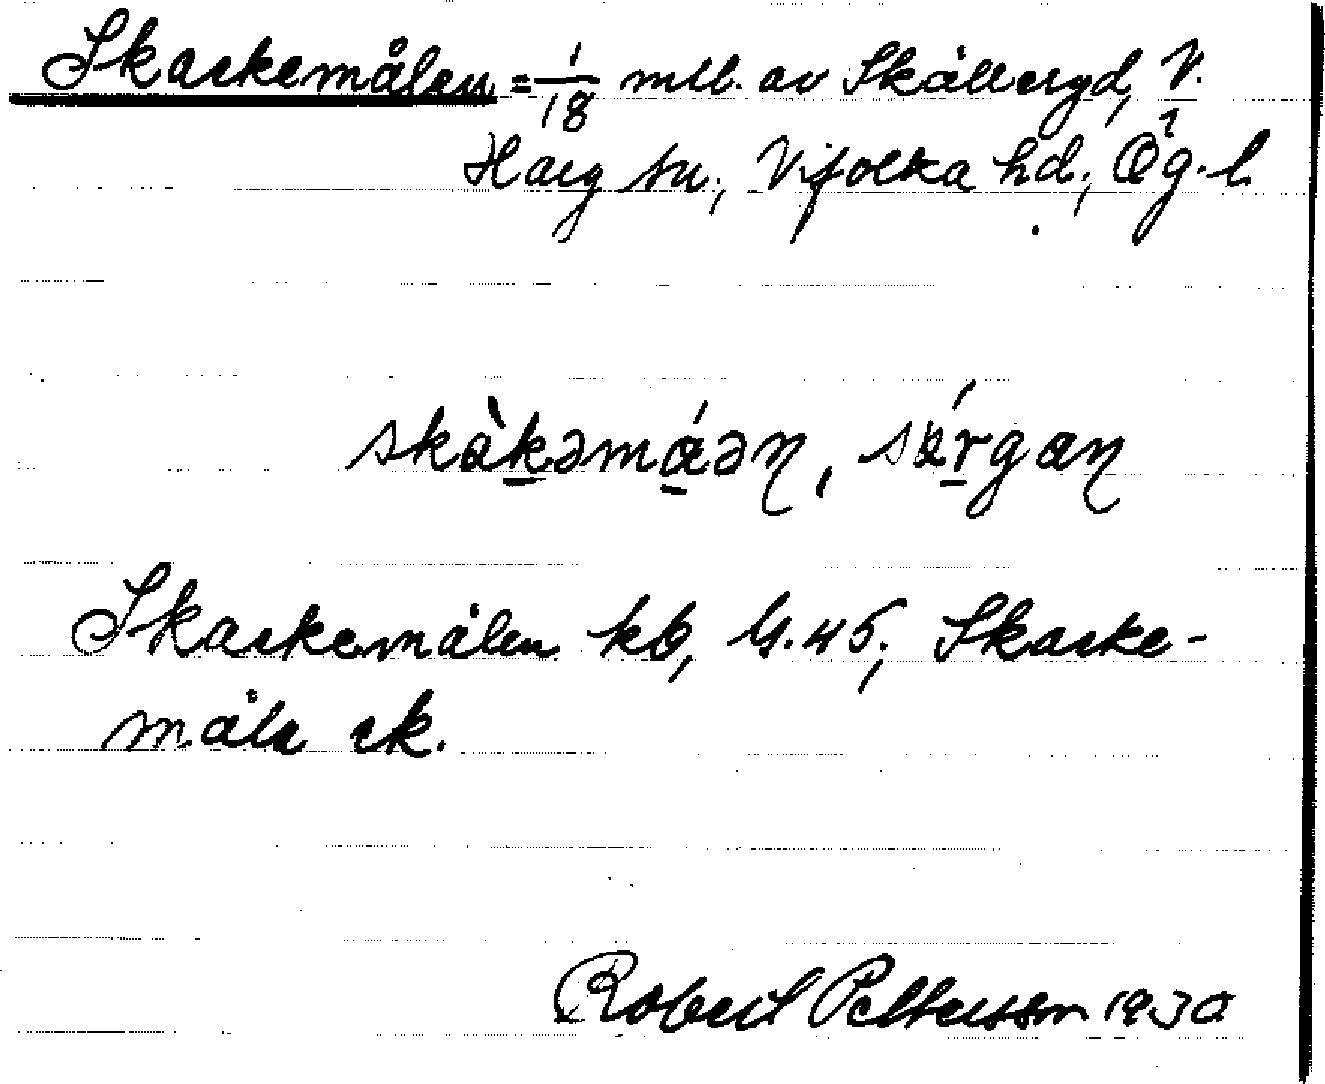 Skarkemålen = 1/18 mtl. av Skällergd, V.
Harg sn; Vifolka hd; Ög. l.
skàkəmáən, sárgan
Skarkemålen kb, G. 45; Skarke-
måla ek.
Robert Pettersson 1930